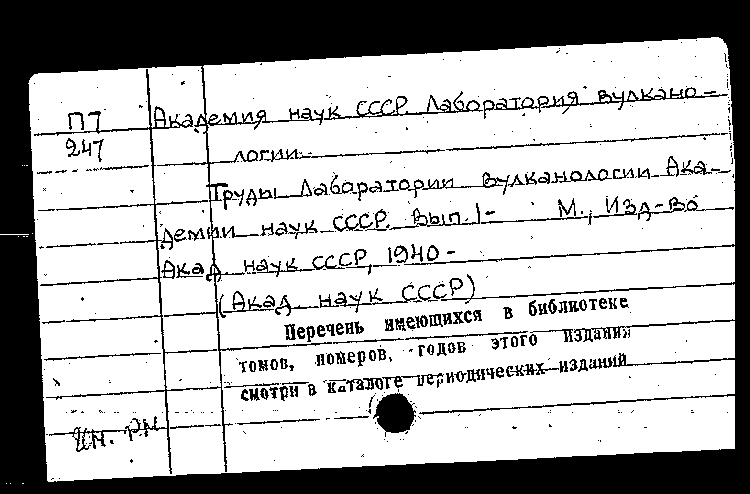 П7
247
Академия наук СССР. Лаборатория вулкано-
логии.
Труды Лаборатории вулканологии Ака-
демии наук СССР. Вып. 1- М., Изд-во
Акад. наук СССР, 1940 -
(Акад. наук СССР)
Перечень имеющихся в библиотеке
томов, номеров, годов этого издания
смотри в каталоге периодических изданий